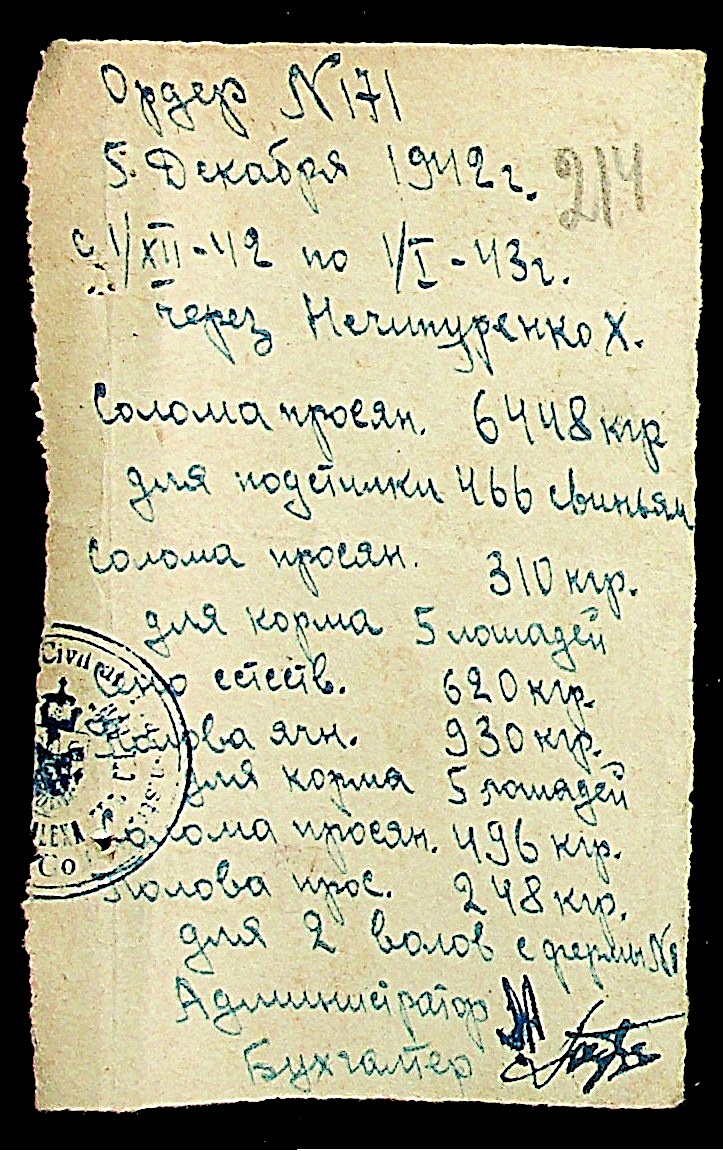 Ордер N 171
5. Декабря 1942 г.
214
с 1/XII-42 по 1/I-43г.
через Нечипуренко Х.
Солома просян. 6448 кгр
для подстилки 466 свиньям
Солома просян. 310 кгр.
для корма 5 лошадей
Сено естеств. 620 кгр.
Полова ячн. 930 кгр.
для корма 5 лошадей
Солома просян. 496 кгр.
Полова прос. 248 кгр.
для 2 волов с фермы №1
Администратор
Бухгалтер
Civil
Co